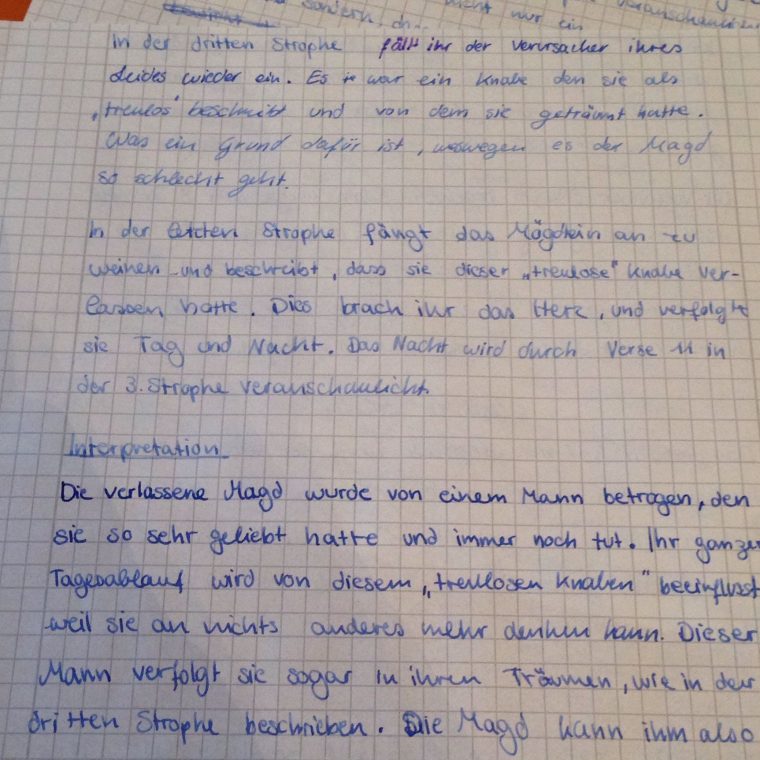 sondern, nicht nur ein veranschaulichen
In der dritten Strophe fällt ihr der Verursacher ihres
Leides wieder ein. Es war ein Knabe den sie als
„treulos" beschreibt und von dem sie geträumt hatte.
Was ein Grund dafür ist, weswegen es der Magd
so schlecht geht.
In der letzten Strophe fängt das Mägdlein an zu
weinen und beschreibt, dass sie dieser „treulose" Knabe ver-
lassen hatte. Dies brach ihr das Herz, und verfolgt
sie Tag und Nacht. Das Nacht wird durch Verse 11 in
der 3. Strophe veranschaulicht.
Interpretation
Die verlassene Magd wurde von einem Mann betrogen, den
sie so sehr geliebt hatte und immer noch tut. Ihr ganzer
Tagesablauf wird von diesem „treulosen Knaben" beeinflusst
weil sie an nichts anderes mehr denken kann. Dieser
Mann verfolgt sie sogar in ihren Träumen, wie in der
dritten Strophe beschrieben. Die Magd kann ihm also